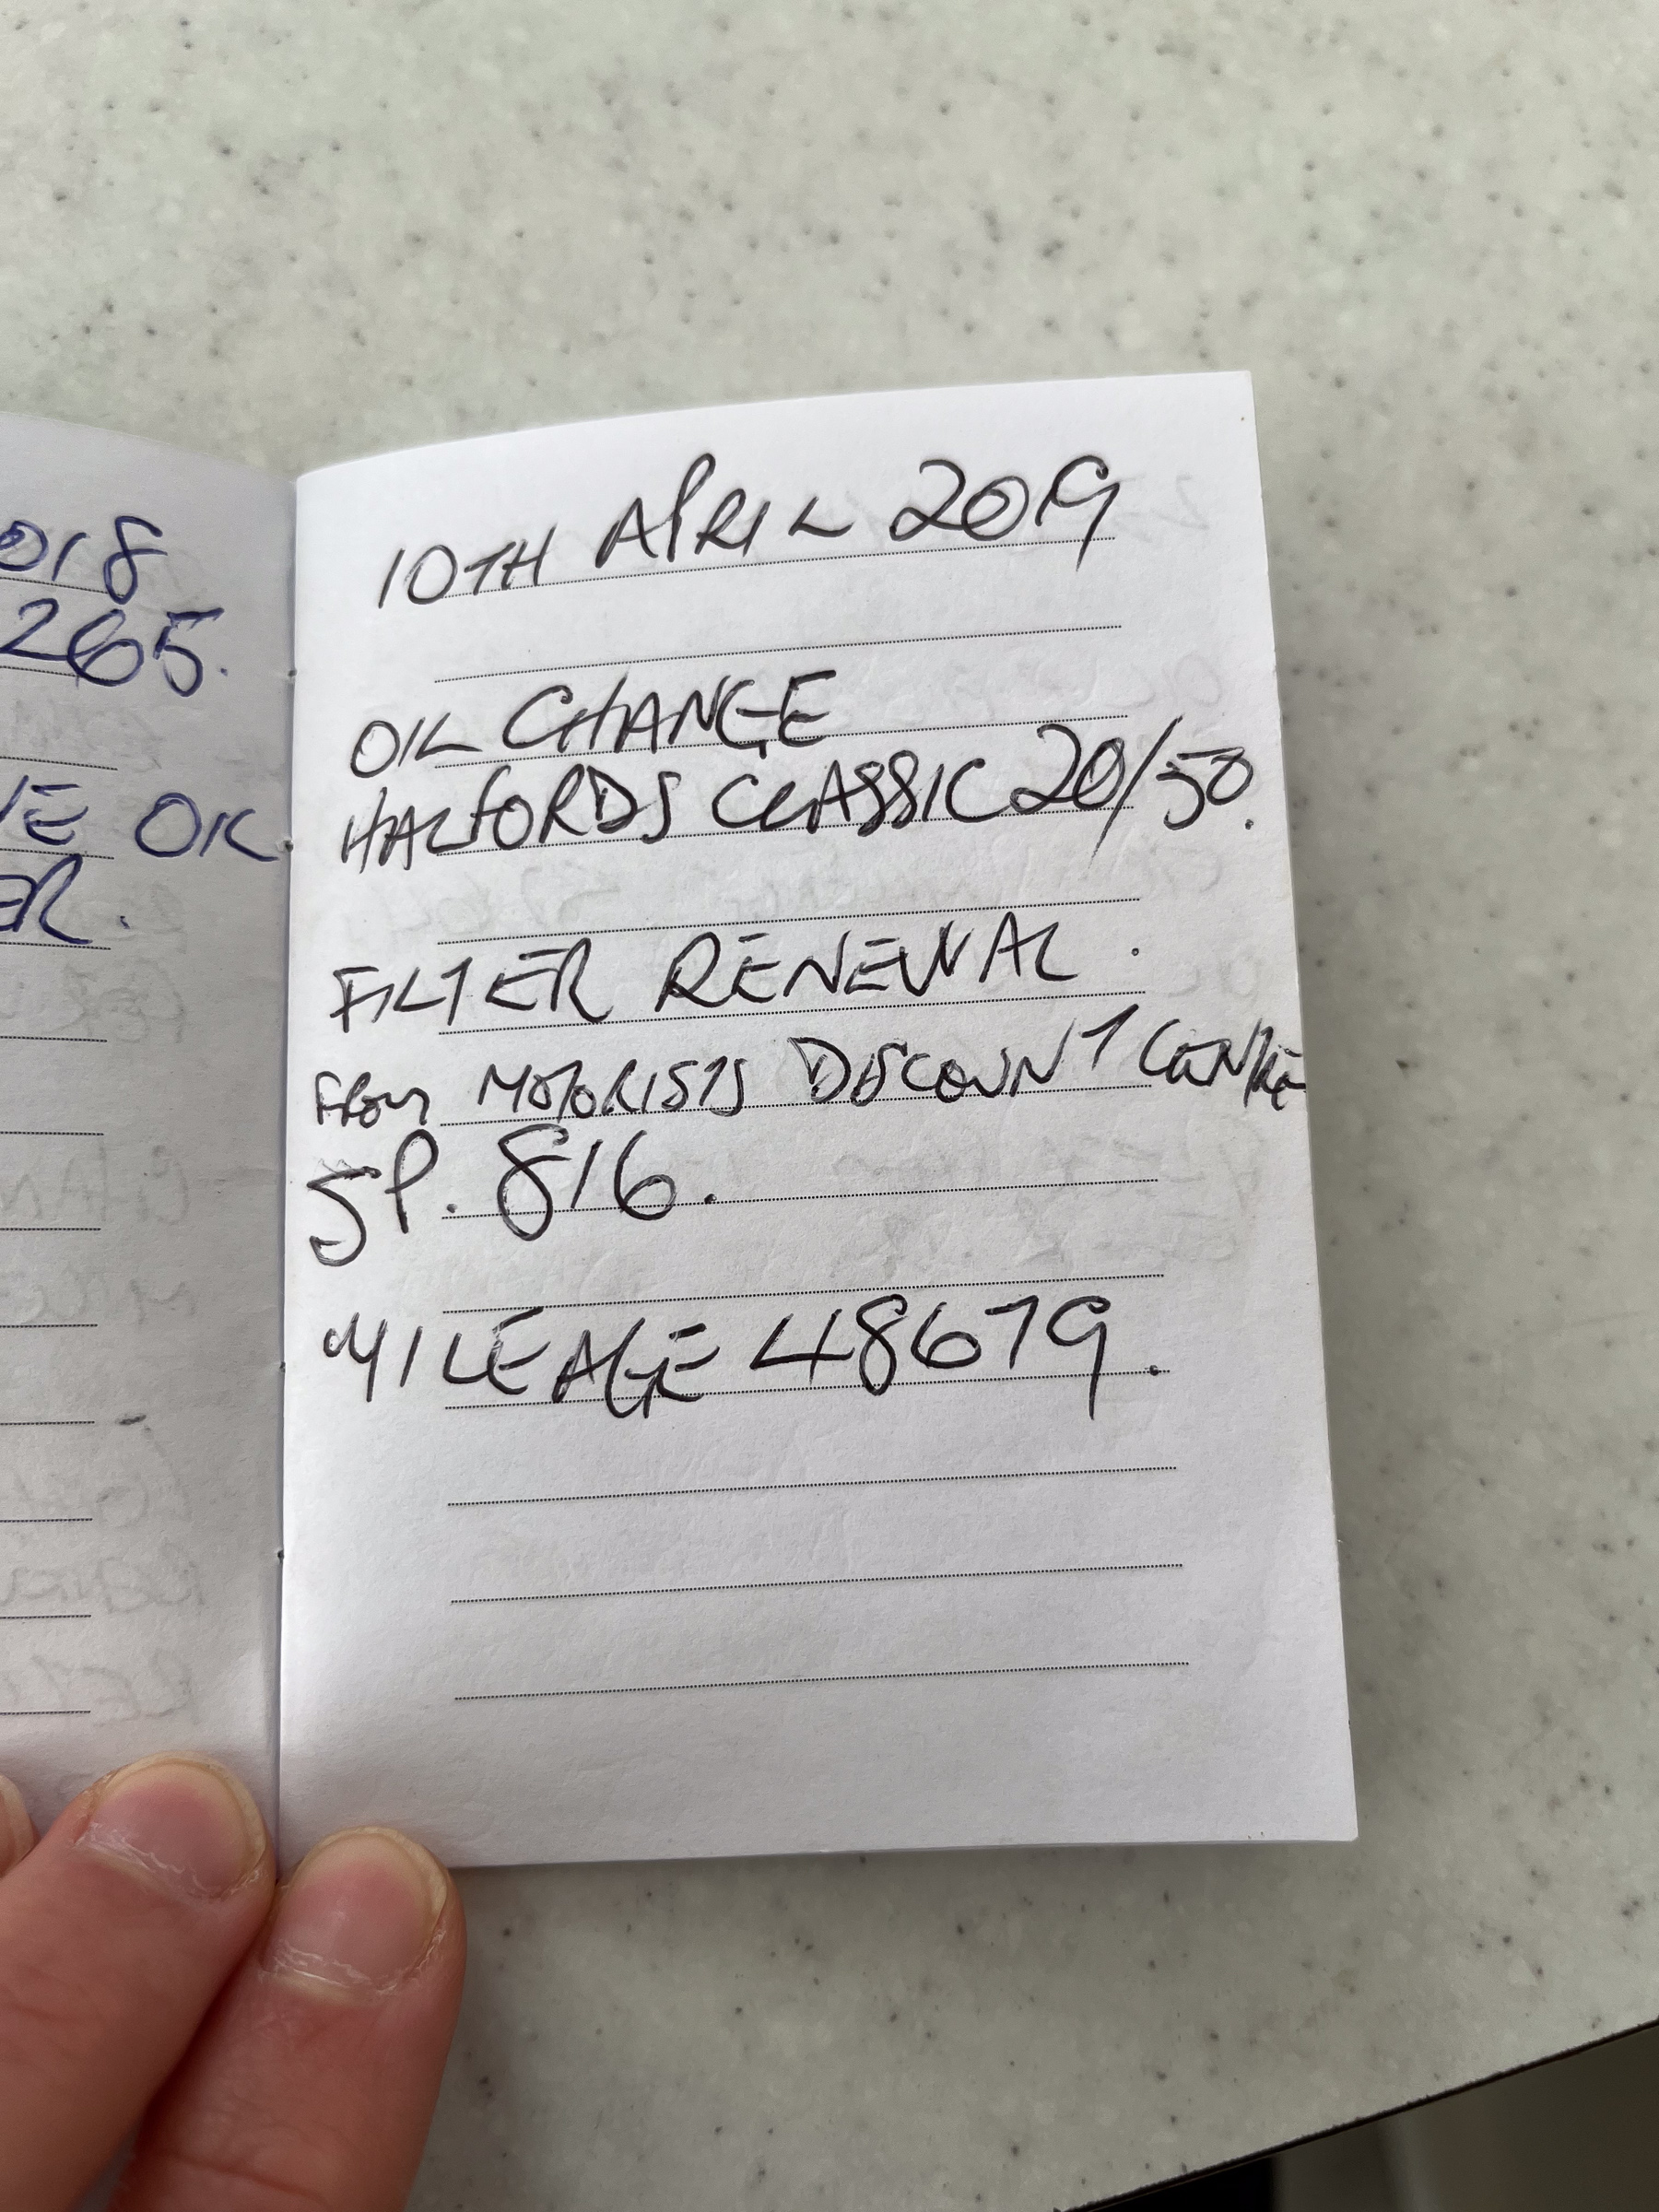 018
265.
VE OK.
ER.
10TH APRIL 2019
OIL CHANGE
HALFORDS CLASSIC 20/50.
FILTER RENEWAL.
FROM MOTORISTS DISCOUNT CENTRE
SP. 816.
MILEAGE 48679.